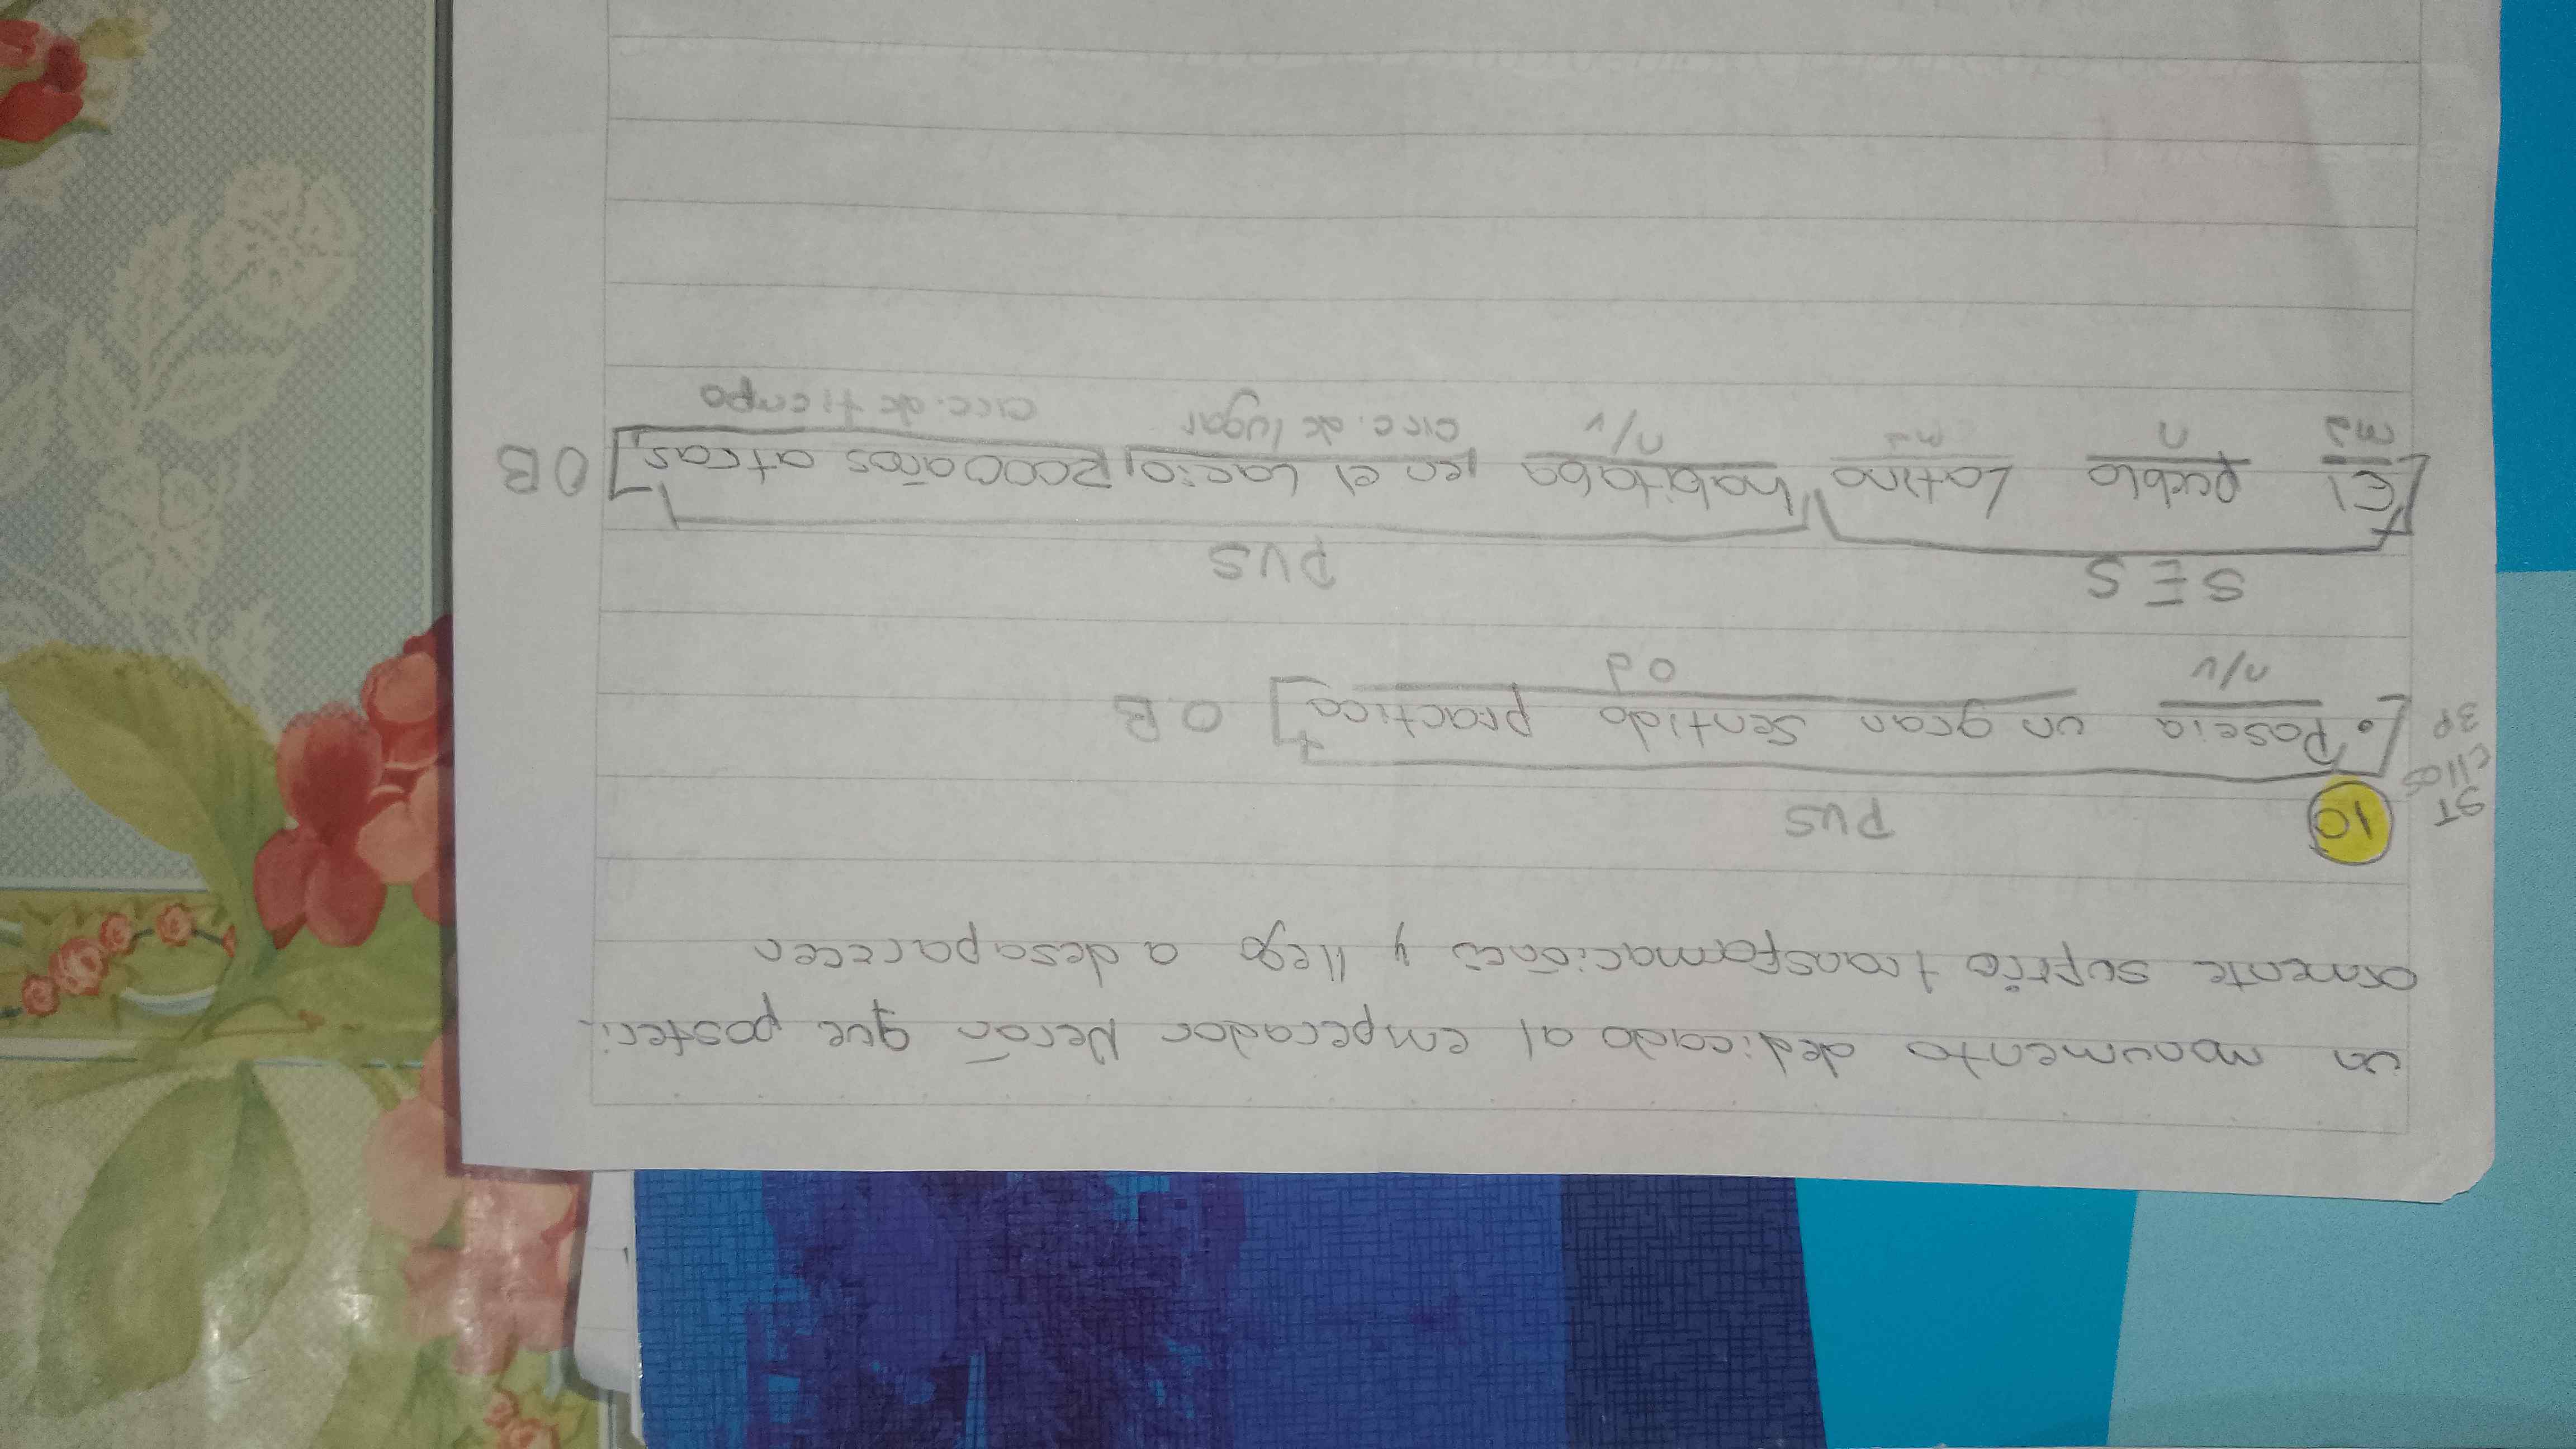 un monumento dedicado al emperador Nerón que posteri-
ormente sufrío transformaciónes y llego a desaparecer
10
PVS
ST
ella
3P
[• Poseia un gran sentido practico] O.B
n/v od
SES PVS
[El pueblo Latino habitaba en el Lacio, 2000 años atras] OB
md n md n/v circ. de lugar circ. de tiempo